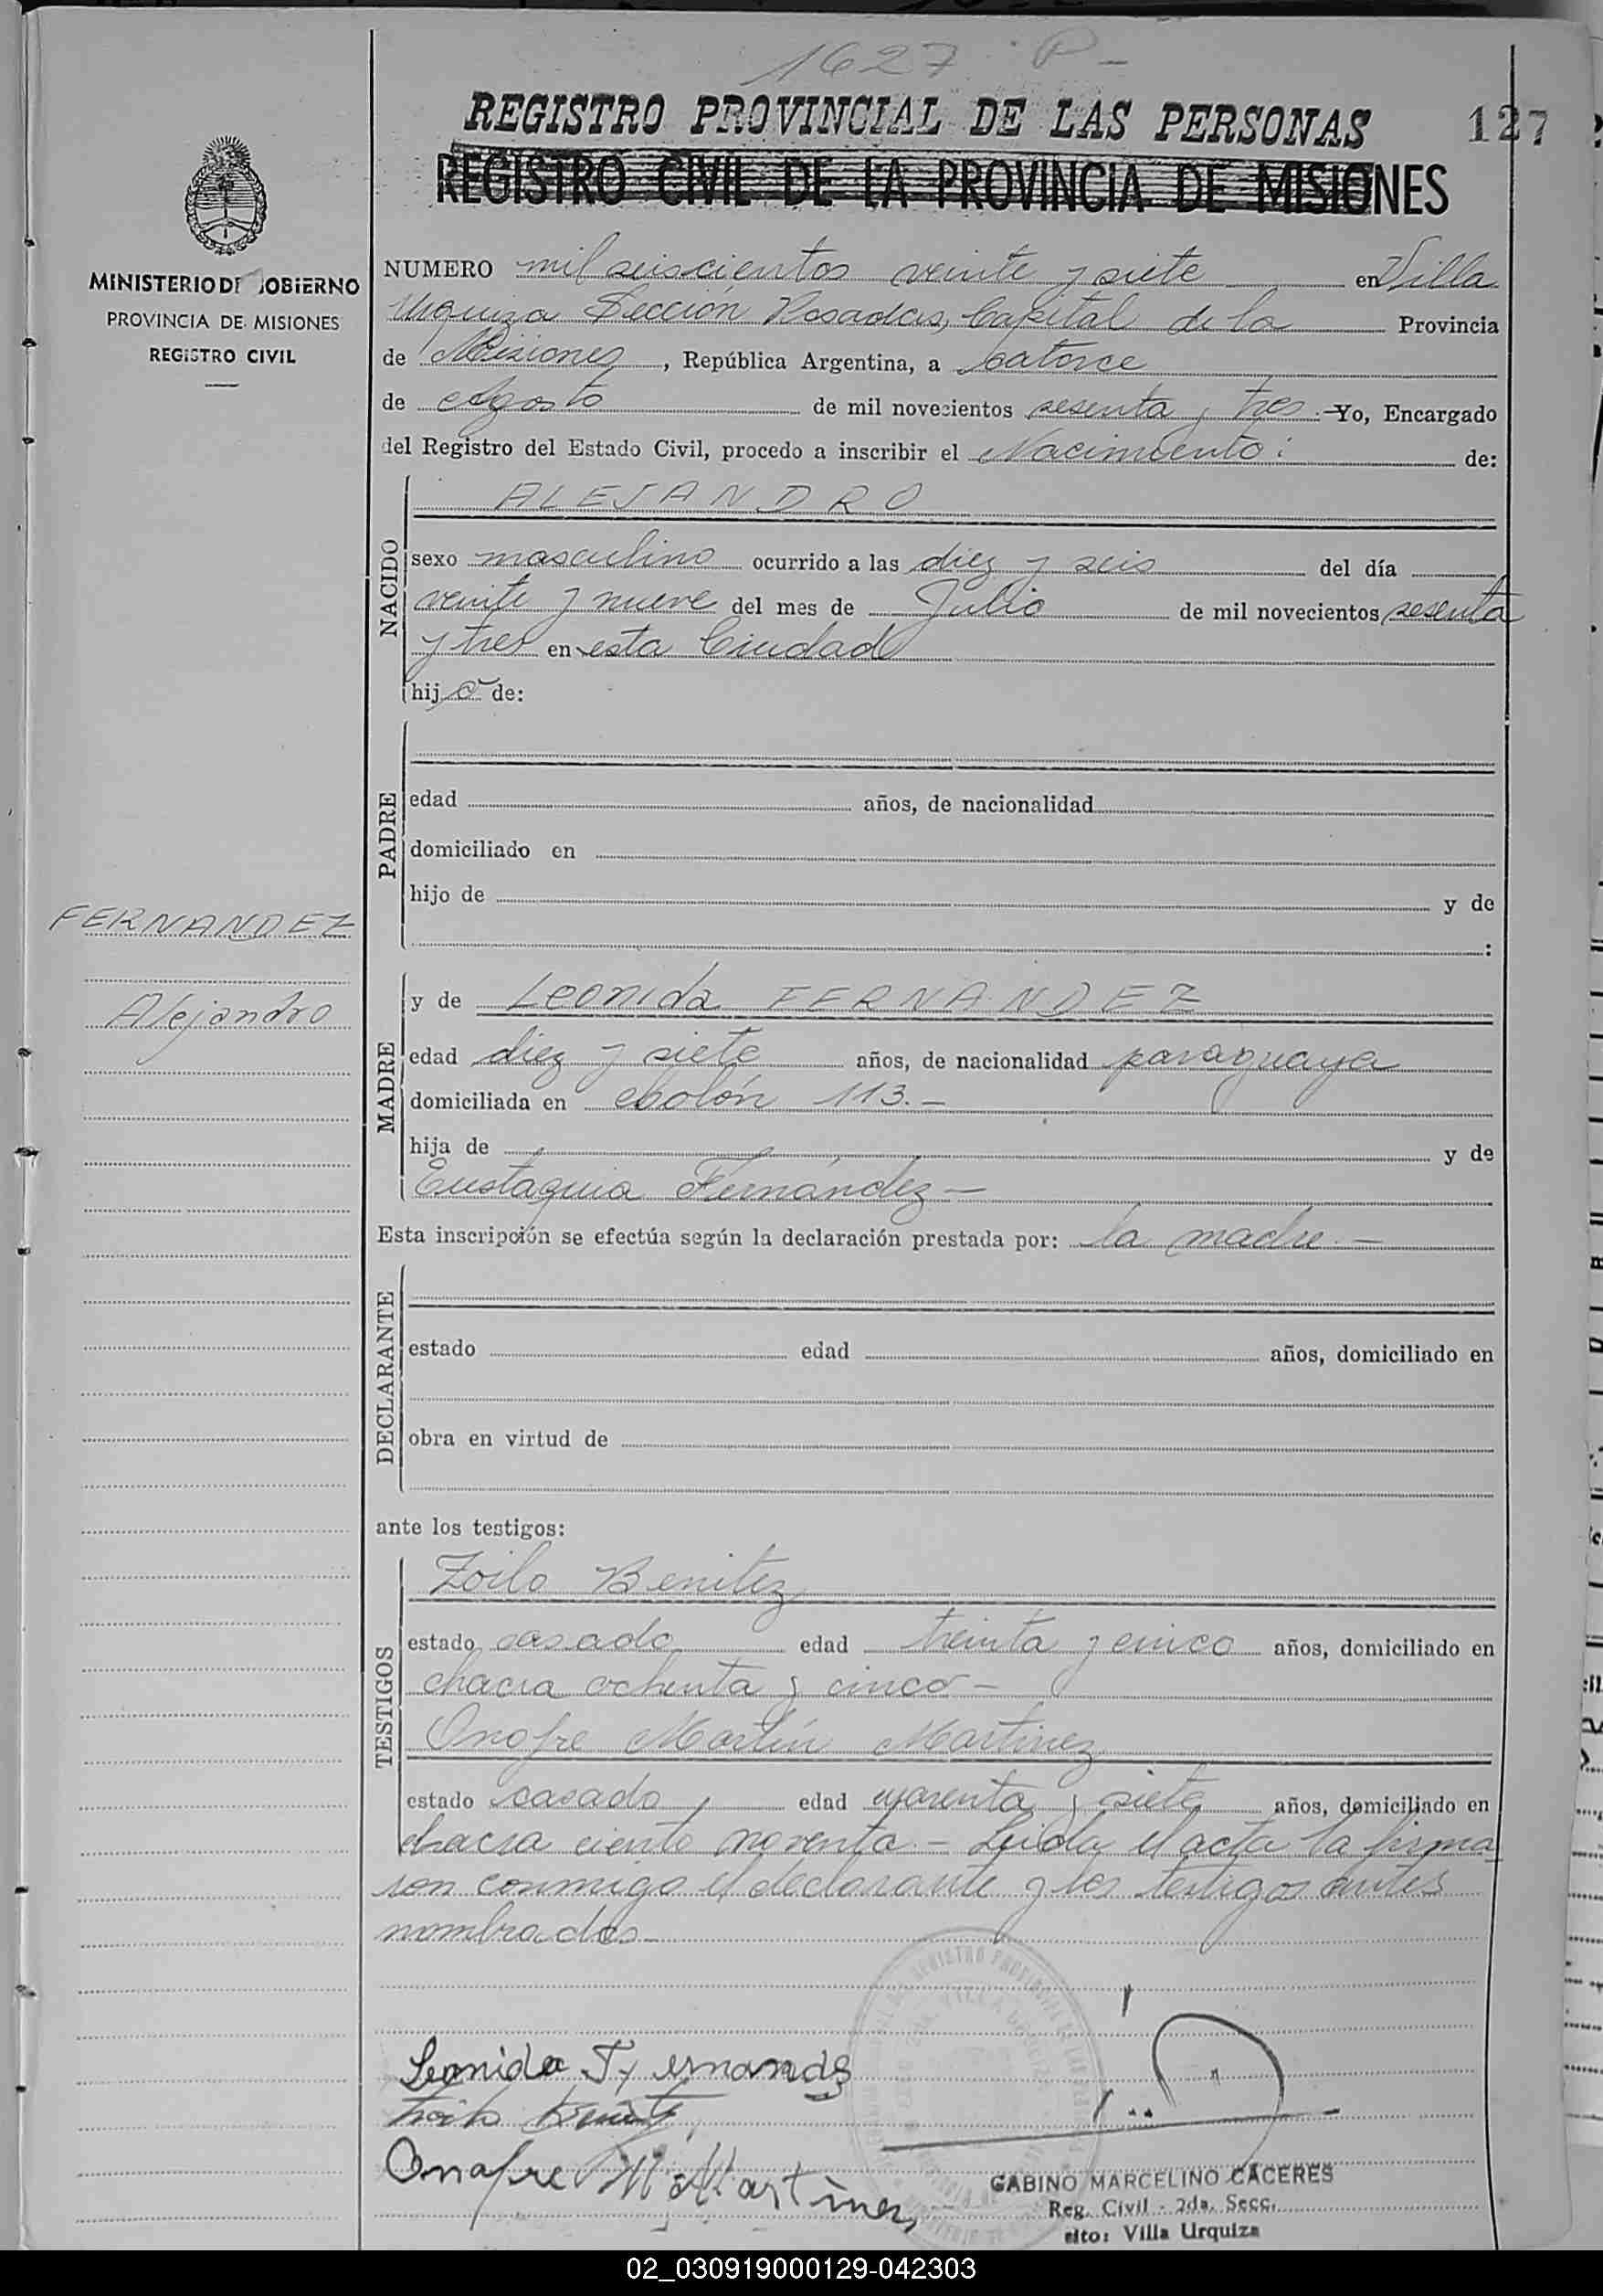 1627 P-
REGISTRO PROVINCIAL DE LAS PERSONAS 127
REGISTRO CIVIL DE LA PROVINCIA DE MISIONES
MINISTERIO DE GOBIERNO
PROVINCIA DE MISIONES
REGISTRO CIVIL
NUMERO mil seiscientos veinte y siete en Villa
Urquiza Sección Posadas, Capital de la Provincia
de Misiones, República Argentina, a catorce
de Agosto de mil novecientos sesenta y tres.-Yo, Encargado
del Registro del Estado Civil, procedo a inscribir el Nacimiento: de:
NACIDO
ALEJANDRO
sexo masculino ocurrido a las diez y seis del día
veinte y nueve del mes de Julio de mil novecientos sesenta
y tres en esta Ciudad
hijo de:
PADRE
edad años, de nacionalidad
domiciliado en
hijo de y de
:
FERNANDEZ
Alejandro
MADRE
y de Leonida FERNANDEZ
edad diez y siete años, de nacionalidad paraguaya
domiciliada en Colón 113.-
hija de y de
Eustaquia Fernández-
Esta inscripción se efectúa según la declaración prestada por: la madre.-
DECLARANTE
estado edad años, domiciliado en
obra en virtud de
ante los testigos:
TESTIGOS
Zoilo Benitez
estado casado edad treinta y cinco años, domiciliado en
chacra ochenta y cinco-
Onofre Martín Martinez
estado casado, edad cuarenta y siete años, domiciliado en
chacra ciento noventa.- Leida el acta la firma
ron conmigo el declarante y los testigos antes
nombrados-
Leonida Fernandez
Zoilo Benitez
Onofre M. Martinez
GABINO MARCELINO CACERES
Reg. Civil - 2da. Secc.
Villa Urquiza
02_030919000129-042303